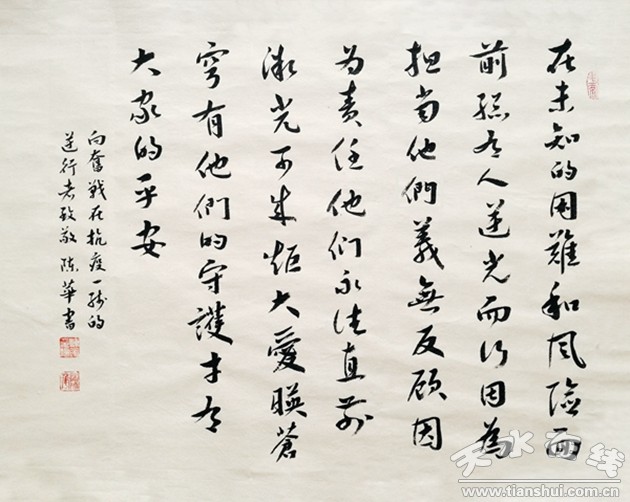 在未知的困難和风險面
前總有人逆光而行因為
担当他們義無反顾因
为责任他们永往直前
微光可成炬大愛暎蒼
穹有他們的守護才有
大家的平安
向奮戰在抗疫一线的
逆行者致敬 陈華書
天水在线
www.tianshui.com.cn